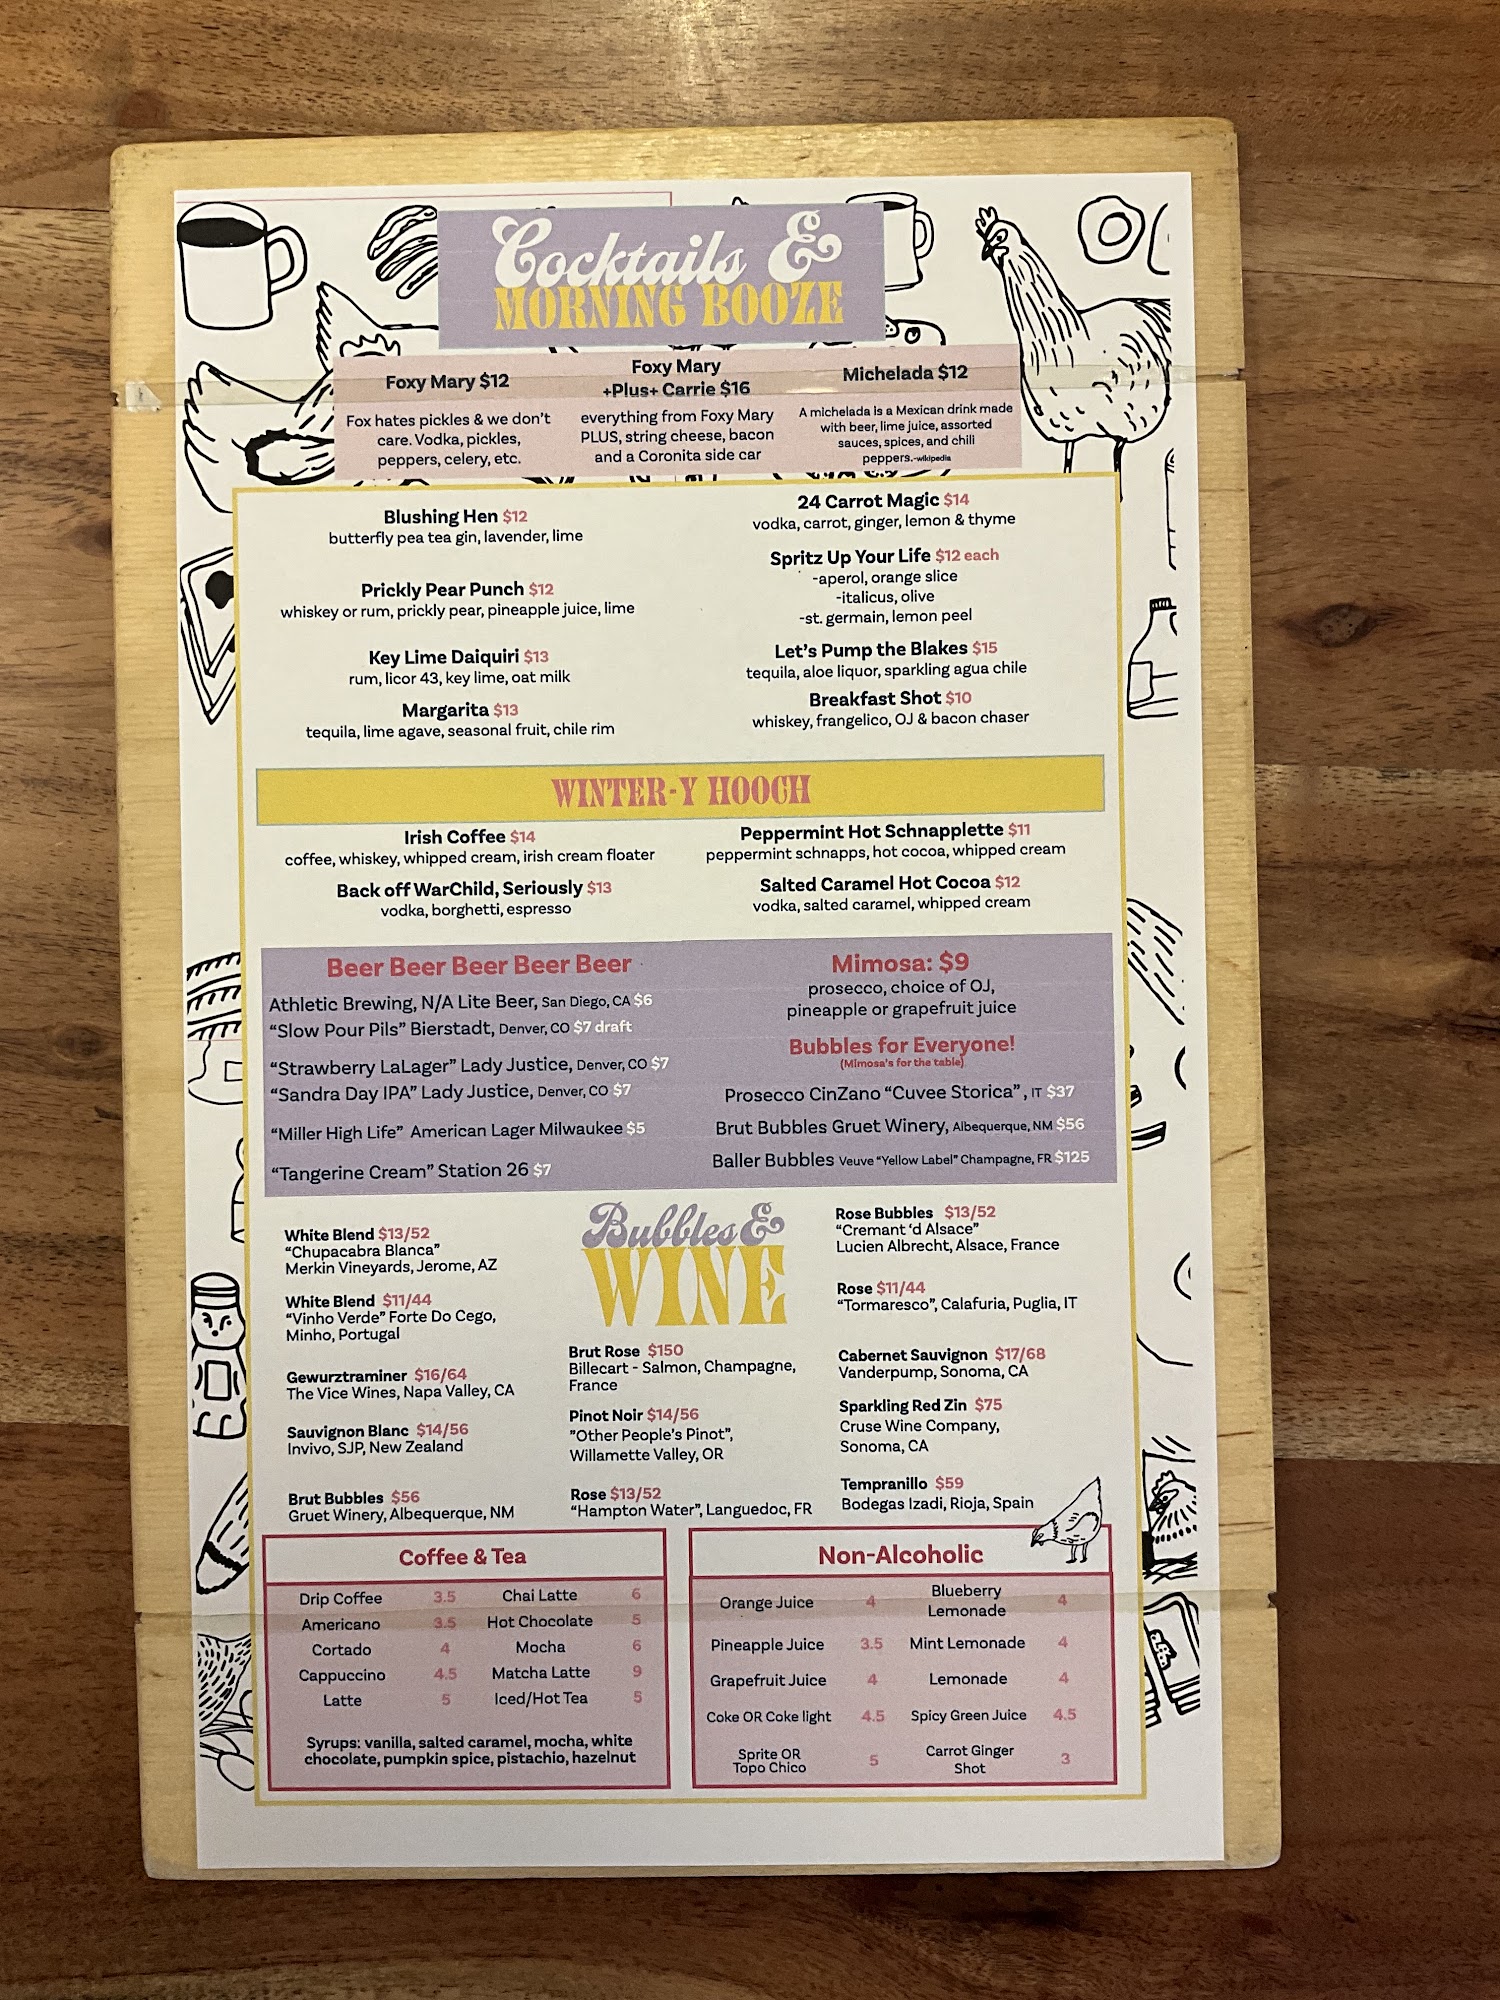 Cocktails &
MORNING BOOZE
Foxy Mary $12
Fox hates pickles & we don't
care. Vodka, pickles,
peppers, celery, etc.
Foxy Mary
+Plus+ Carrie $16
everything from Foxy Mary
PLUS, string cheese, bacon
and a Coronita side car
Michelada $12
A michelada is a Mexican drink made
with beer, lime juice, assorted
sauces, spices, and chili
peppers.-wikipedia
Blushing Hen $12
butterfly pea tea gin, lavender, lime
Prickly Pear Punch $12
whiskey or rum, prickly pear, pineapple juice, lime
Key Lime Daiquiri $13
rum, licor 43, key lime, oat milk
Margarita $13
tequila, lime agave, seasonal fruit, chile rim
24 Carrot Magic $14
vodka, carrot, ginger, lemon & thyme
Spritz Up Your Life $12 each
-aperol, orange slice
-italicus, olive
-st. germain, lemon peel
Let's Pump the Blakes $15
tequila, aloe liquor, sparkling agua chile
Breakfast Shot $10
whiskey, frangelico, OJ & bacon chaser
WINTER-Y HOOCH
Irish Coffee $14
coffee, whiskey, whipped cream, irish cream floater
Back off WarChild, Seriously $13
vodka, borghetti, espresso
Peppermint Hot Schnapplette $11
peppermint schnapps, hot cocoa, whipped cream
Salted Caramel Hot Cocoa $12
vodka, salted caramel, whipped cream
Beer Beer Beer Beer Beer
Athletic Brewing, N/A Lite Beer, San Diego, CA $6
"Slow Pour Pils" Bierstadt, Denver, CO $7 draft
"Strawberry LaLager" Lady Justice, Denver, CO $7
"Sandra Day IPA" Lady Justice, Denver, CO $7
"Miller High Life" American Lager Milwaukee $5
"Tangerine Cream" Station 26 $7
Mimosa: $9
prosecco, choice of OJ,
pineapple or grapefruit juice
Bubbles for Everyone!
(Mimosa's for the table)
Prosecco CinZano "Cuvee Storica" , IT $37
Brut Bubbles Gruet Winery, Albequerque, NM $56
Baller Bubbles Veuve "Yellow Label" Champagne, FR $125
Bubbles &
WINE
White Blend $13/52
"Chupacabra Blanca"
Merkin Vineyards, Jerome, AZ
White Blend $11/44
"Vinho Verde" Forte Do Cego,
Minho, Portugal
Gewurztraminer $16/64
The Vice Wines, Napa Valley, CA
Sauvignon Blanc $14/56
Invivo, SJP, New Zealand
Brut Bubbles $56
Gruet Winery, Albequerque, NM
Brut Rose $150
Billecart - Salmon, Champagne,
France
Pinot Noir $14/56
"Other People's Pinot",
Willamette Valley, OR
Rose $13/52
"Hampton Water", Languedoc, FR
Rose Bubbles $13/52
"Cremant 'd Alsace"
Lucien Albrecht, Alsace, France
Rose $11/44
"Tormaresco", Calafuria, Puglia, IT
Cabernet Sauvignon $17/68
Vanderpump, Sonoma, CA
Sparkling Red Zin $75
Cruse Wine Company,
Sonoma, CA
Tempranillo $59
Bodegas Izadi, Rioja, Spain
Coffee & Tea
Drip Coffee 3.5 Chai Latte 6
Americano 3.5 Hot Chocolate 5
Cortado 4 Mocha 6
Cappuccino 4.5 Matcha Latte 9
Latte 5 Iced/Hot Tea 5
Syrups: vanilla, salted caramel, mocha, white
chocolate, pumpkin spice, pistachio, hazelnut
Non-Alcoholic
Orange Juice 4 Blueberry
Lemonade 4
Pineapple Juice 3.5 Mint Lemonade 4
Grapefruit Juice 4 Lemonade 4
Coke OR Coke light 4.5 Spicy Green Juice 4.5
Sprite OR
Topo Chico 5 Carrot Ginger
Shot 3